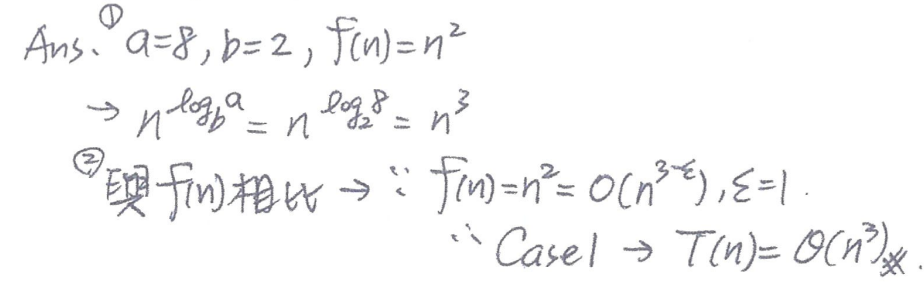 Ans、① a=8, b=2, f(n)=n²
→ n^{log_b a} = n^{log_2 8} = n³
② 與f(n)相比 → ∵ f(n)=n²=O(n^{3-ε}), ε=1.
∴ Case1 → T(n)=Θ(n³)※.